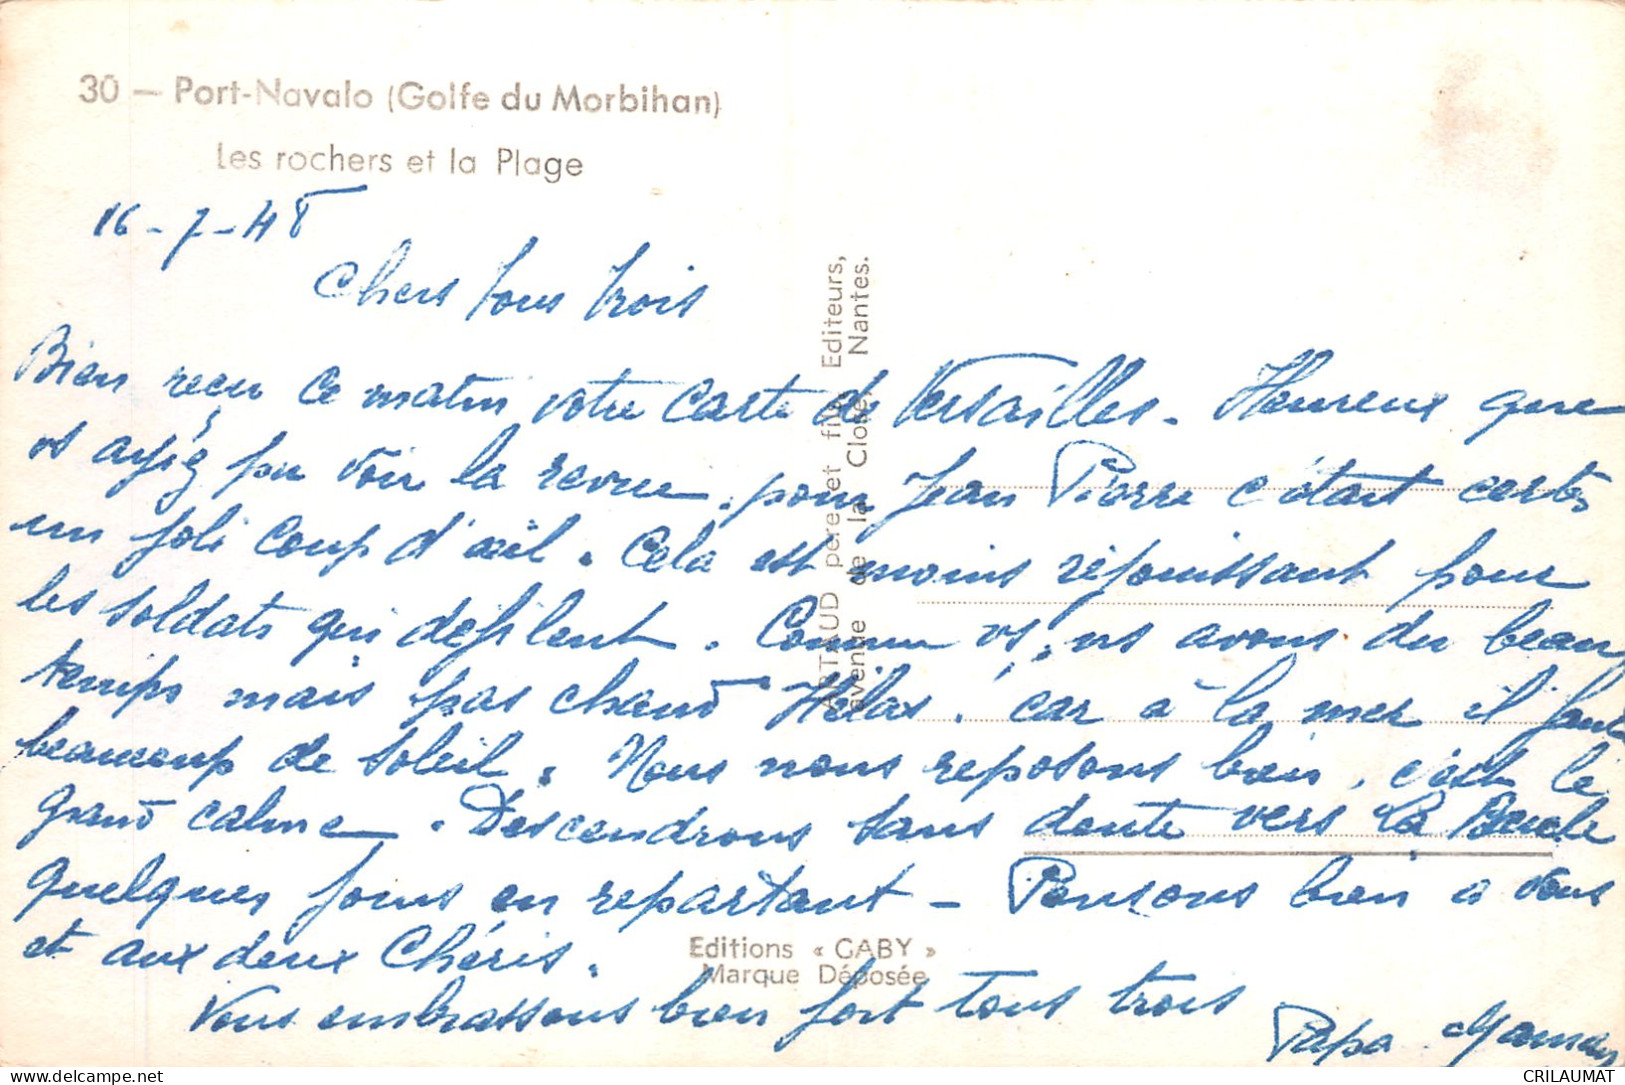 30 — Port-Navalo (Golfe du Morbihan)
Les rochers et la Plage
16-7-48
Chers tous trois
Bien reçu ce matin votre carte de Versailles. Heureux que
vs ayiez pu voir la revue, pour Jean Pierre c'était certes
un joli coup d'œil. Cela est moins réjouissant pour
les soldats qui défilent. Comme vs, ns avons du beau
temps mais pas chaud Hélas! car à la mer il faut
beaucoup de soleil. Nous nous reposons bien, c'est le
grand calme. Descendrons sans doute vers La Baule
quelques jours en repartant — Pensons bien a vous
et aux deux Chéris.
Vous embrassons bien fort tous trois
Papa Maman
ARTAUD père et fils Editeurs,
avenue de la Close, Nantes.
Editions « GABY »
Marque Déposée
www.delcampe.net
CRILAUMAT